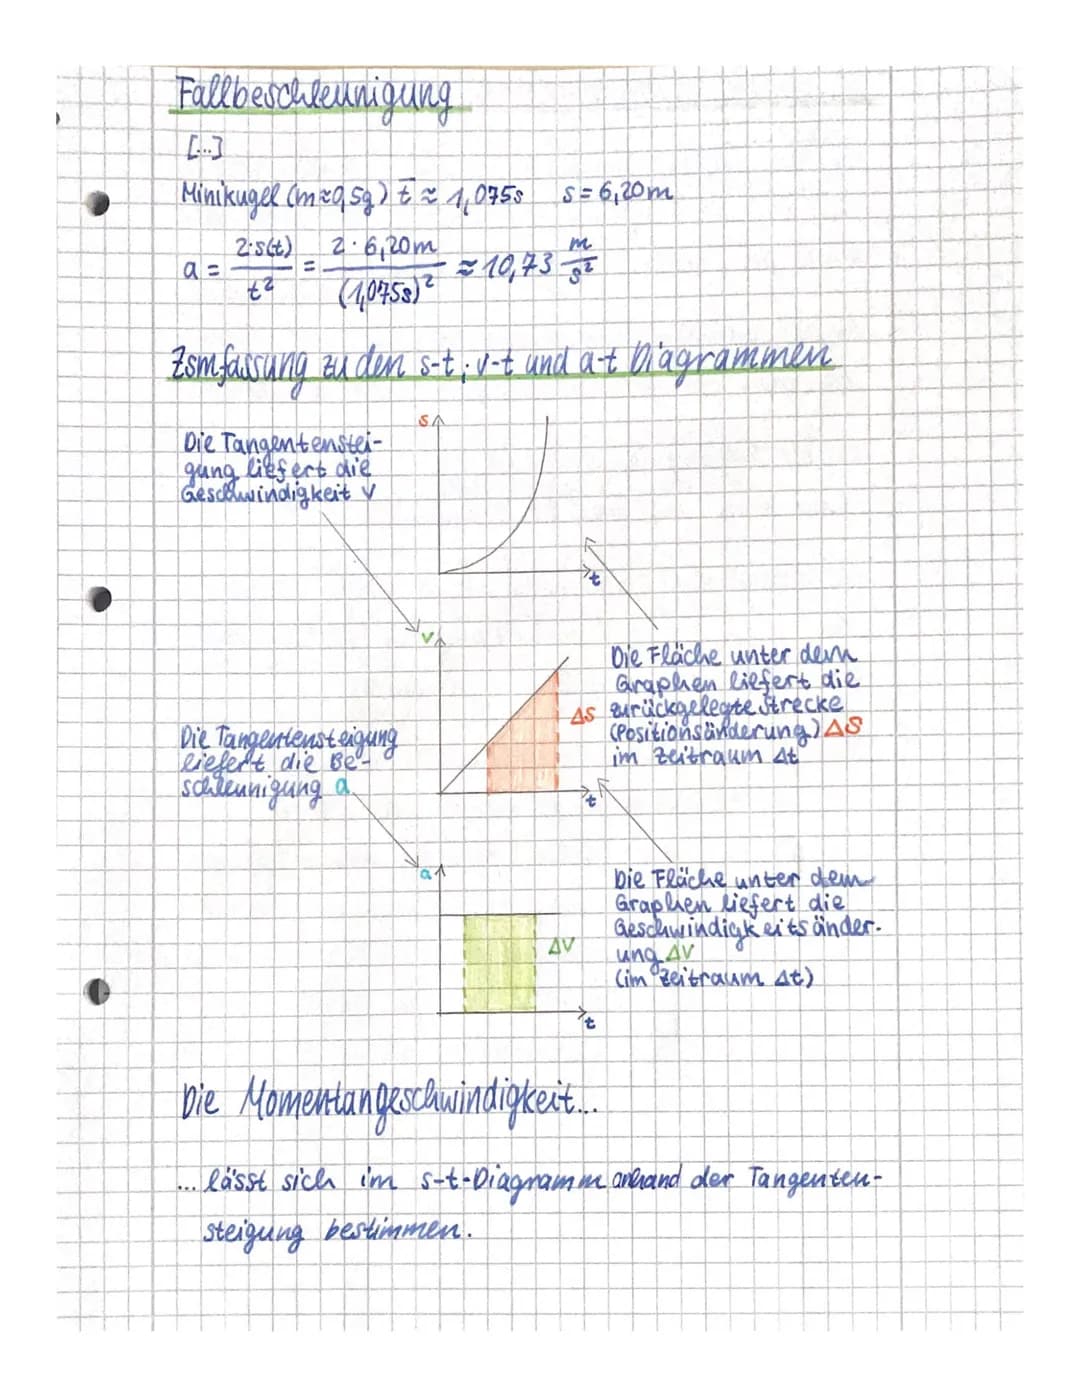 Fallbeschleunigung
[...]
Minikugel (m≈0,5g) t̅ ≈ 1,075s s = 6,20m
a = 2·s(t)/t² = 2·6,20m/(1,075s)² ≈ 10,73 m/s²
Zsmfassung zu den s-t, v-t und a-t Diagrammen
s
Die Tangentenstei-
gung liefert die
Geschwindigkeit v
t
v
Die Fläche unter dem
Graphen liefert die
zurückgelegte Strecke
(Positionsänderung) ΔS
im Zeitraum Δt
ΔS
Die Tangentensteigung
liefert die Be-
schleunigung a
t
a
Die Fläche unter dem
Graphen liefert die
Geschwindigkeitsänder-
ung ΔV
(im Zeitraum Δt)
ΔV
t
Die Momentangeschwindigkeit...
... lässt sich im s-t-Diagramm anhand der Tangenten-
steigung bestimmen.